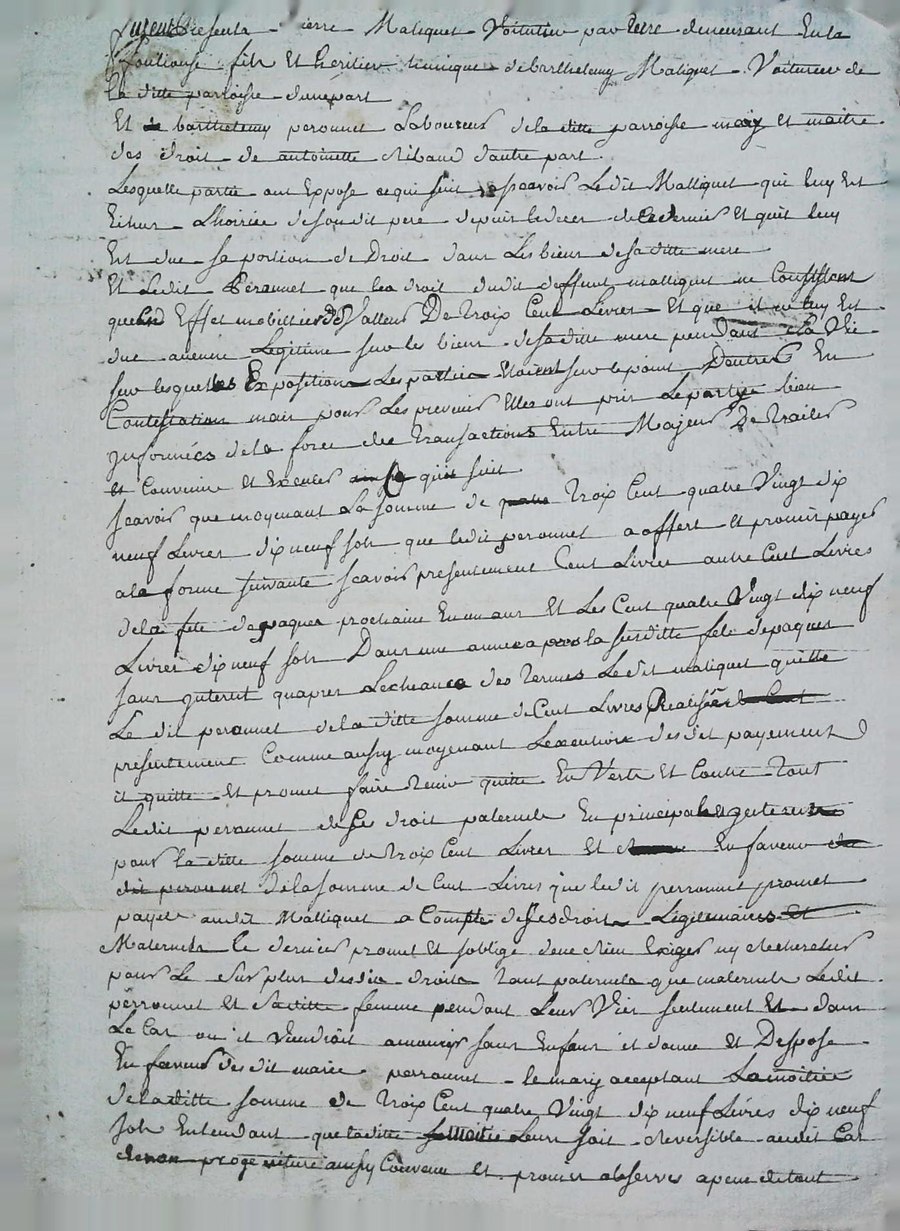 furent présents pierre Matiquet Voiturier par terre demeurant En la
fils Et heritier unnique de barthelemy Matiquet Voiturier de
la ditte parroisse dune part
Et barthelemy peronnet Laboureur de la ditte parroisse mary Et maitre
des droit de antoinette Ribaud dautre part
Lesquelle partie ont Exposé ce qui suit scavoir Le dit Mattiquet qui luy Est
Lhoirie de son dit pere depuis le deces de ce dernier Et quil luy
Est due sa portion de Droit dans Les biens de sa ditte mere
Et Le dit Peronnet que les droit dudit deffunt mattiquet ne Consistent
quen Effet mobilliers de Valleur De Troix Cent Livres Et que il ne luy Est
due aucune Legitime sur les biens de sa ditte mere pendant sa Vie
sur lesquelles Expositions Les parties Etoient sur le point Dentrer En
Contestation mais pour Les prevenir Elles ont pris Le partye bien
informées de la force des transactions Entre Majeurs De Traiter
et Convenir Et Executer ce qui suit
scavoir que moyenant La somme de Troix Cent quatre Vingt dix
neuf Livres dix neuf sols que ledit peronnet a offert Et promis payer
a la forme suivante scavoir presentement Cent Livres autre Cent Livres
de la fete de paques prochaine En un ans Et Les Cent quatre Vingt dix neuf
Livres dix neuf sols Dans une annee apres la susditte fete de paques
sans interest quapres Lecheance des termes Le dit matiquet quitte
Le dit peronnet de la ditte somme de Cent Livres Realisée
presentement Comme aussy moyenant Lexecution desdit payement
il quitte Et promet faire tenir quitte En Vers Et Contre Tout
Le dit peronnet de ses droit paternels En principal et
pour la ditte somme de Troix Cent Livres Et En faveur
dit peronnet de la somme de Cent Livres que ledit perronnet promet
payer audit Mattiquet a Compte de ses droits Legitimaires Et
Maternels le dernier promet Et soblige de ne Rien Exiger ny Rechercher
pour Le surplus desdis droits tant paternels que maternels Ledit
perronnet Et sa ditte femme pendant Leurs Vies seulement Et dans
Le Cas ou il Viendroit a mourir sans Enfans il donne Et Dispose
En faveur desdit mariés perronnet le mary acceptant La moitié
de la ditte somme de Troix Cent quatre Vingt dix neuf Livres dix neuf
sols Entendant que laditte moitié Leur soit Reversible audit Cas
de non progeniture ainsy Convenu Et promis observer a peine de tout